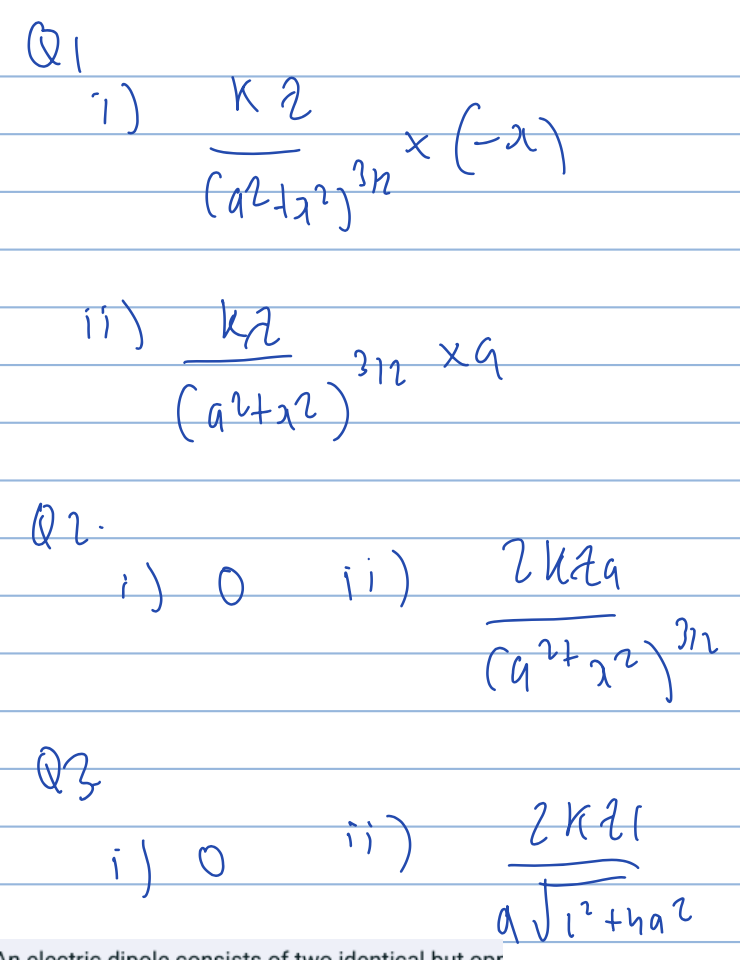 Q1
i) kλ / (a²+x²)^3/2 × (-x)
ii) kλ / (a²+x²)^3/2 × a
Q2.
i) 0 ii) 2kλa / (a²+x²)^3/2
Q3
i) 0 ii) 2kλl / a√l²+4a²
An electric dipole consists of two identical but opp